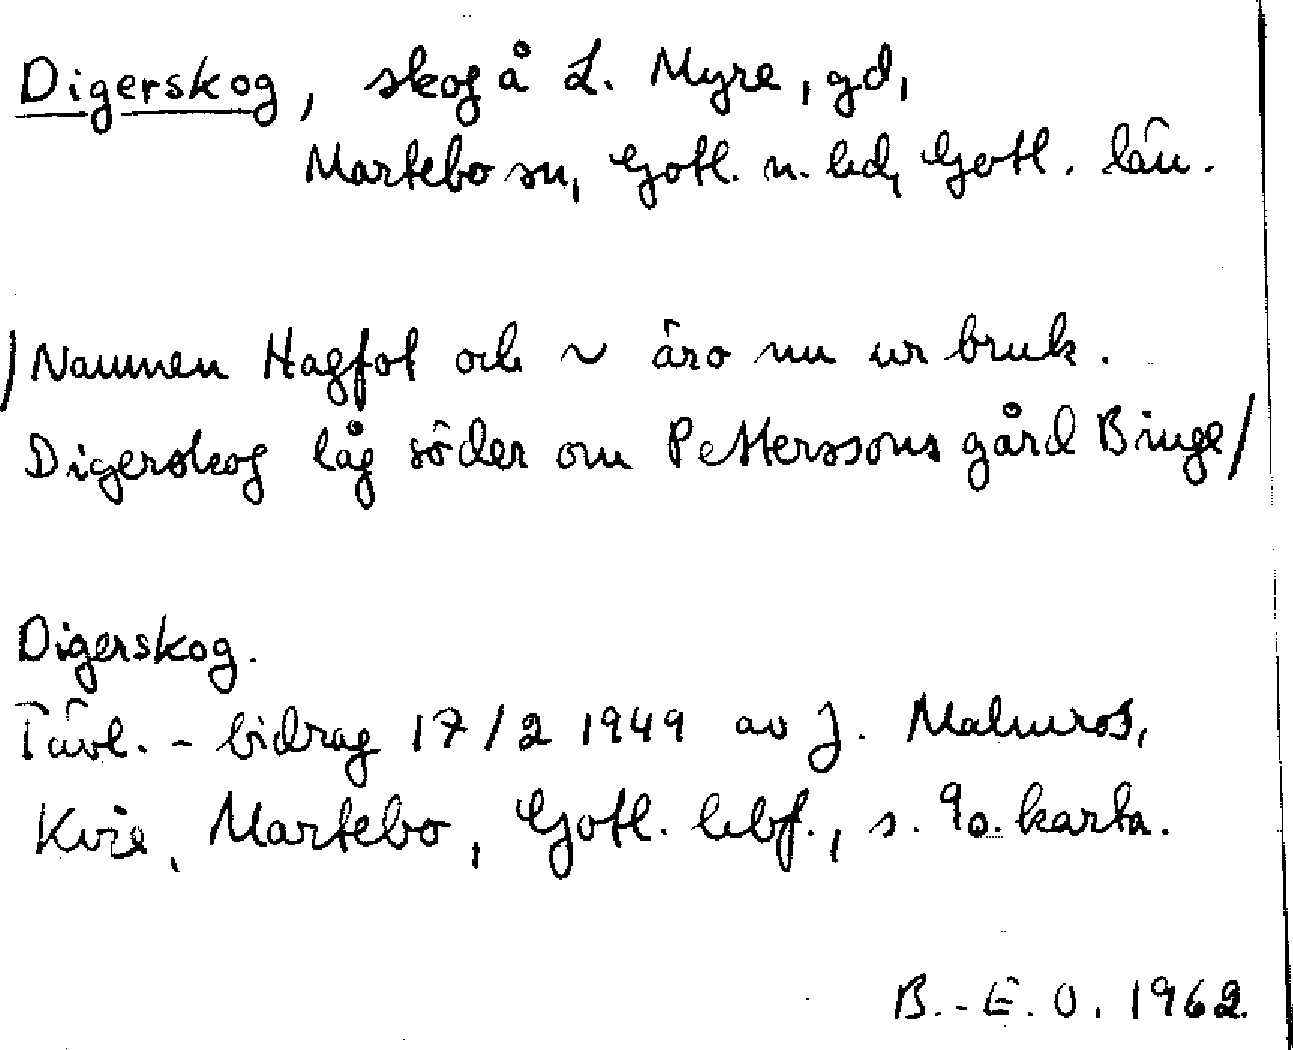 Digerskog, skog å L. Myre, gd,
Martebo sn, Gotl. n. hd, Gotl. län.
/Namnen Hagfot och ~ äro nu ur bruk.
Digerskog låg söder om Petterssons gård Binge/
Digerskog.
Tävl. - bidrag 17/2 1949 av J. Malmros,
Kvie, Martebo, Gotl. hbf., s. 9 o. karta.
B.-E. O. 1962.